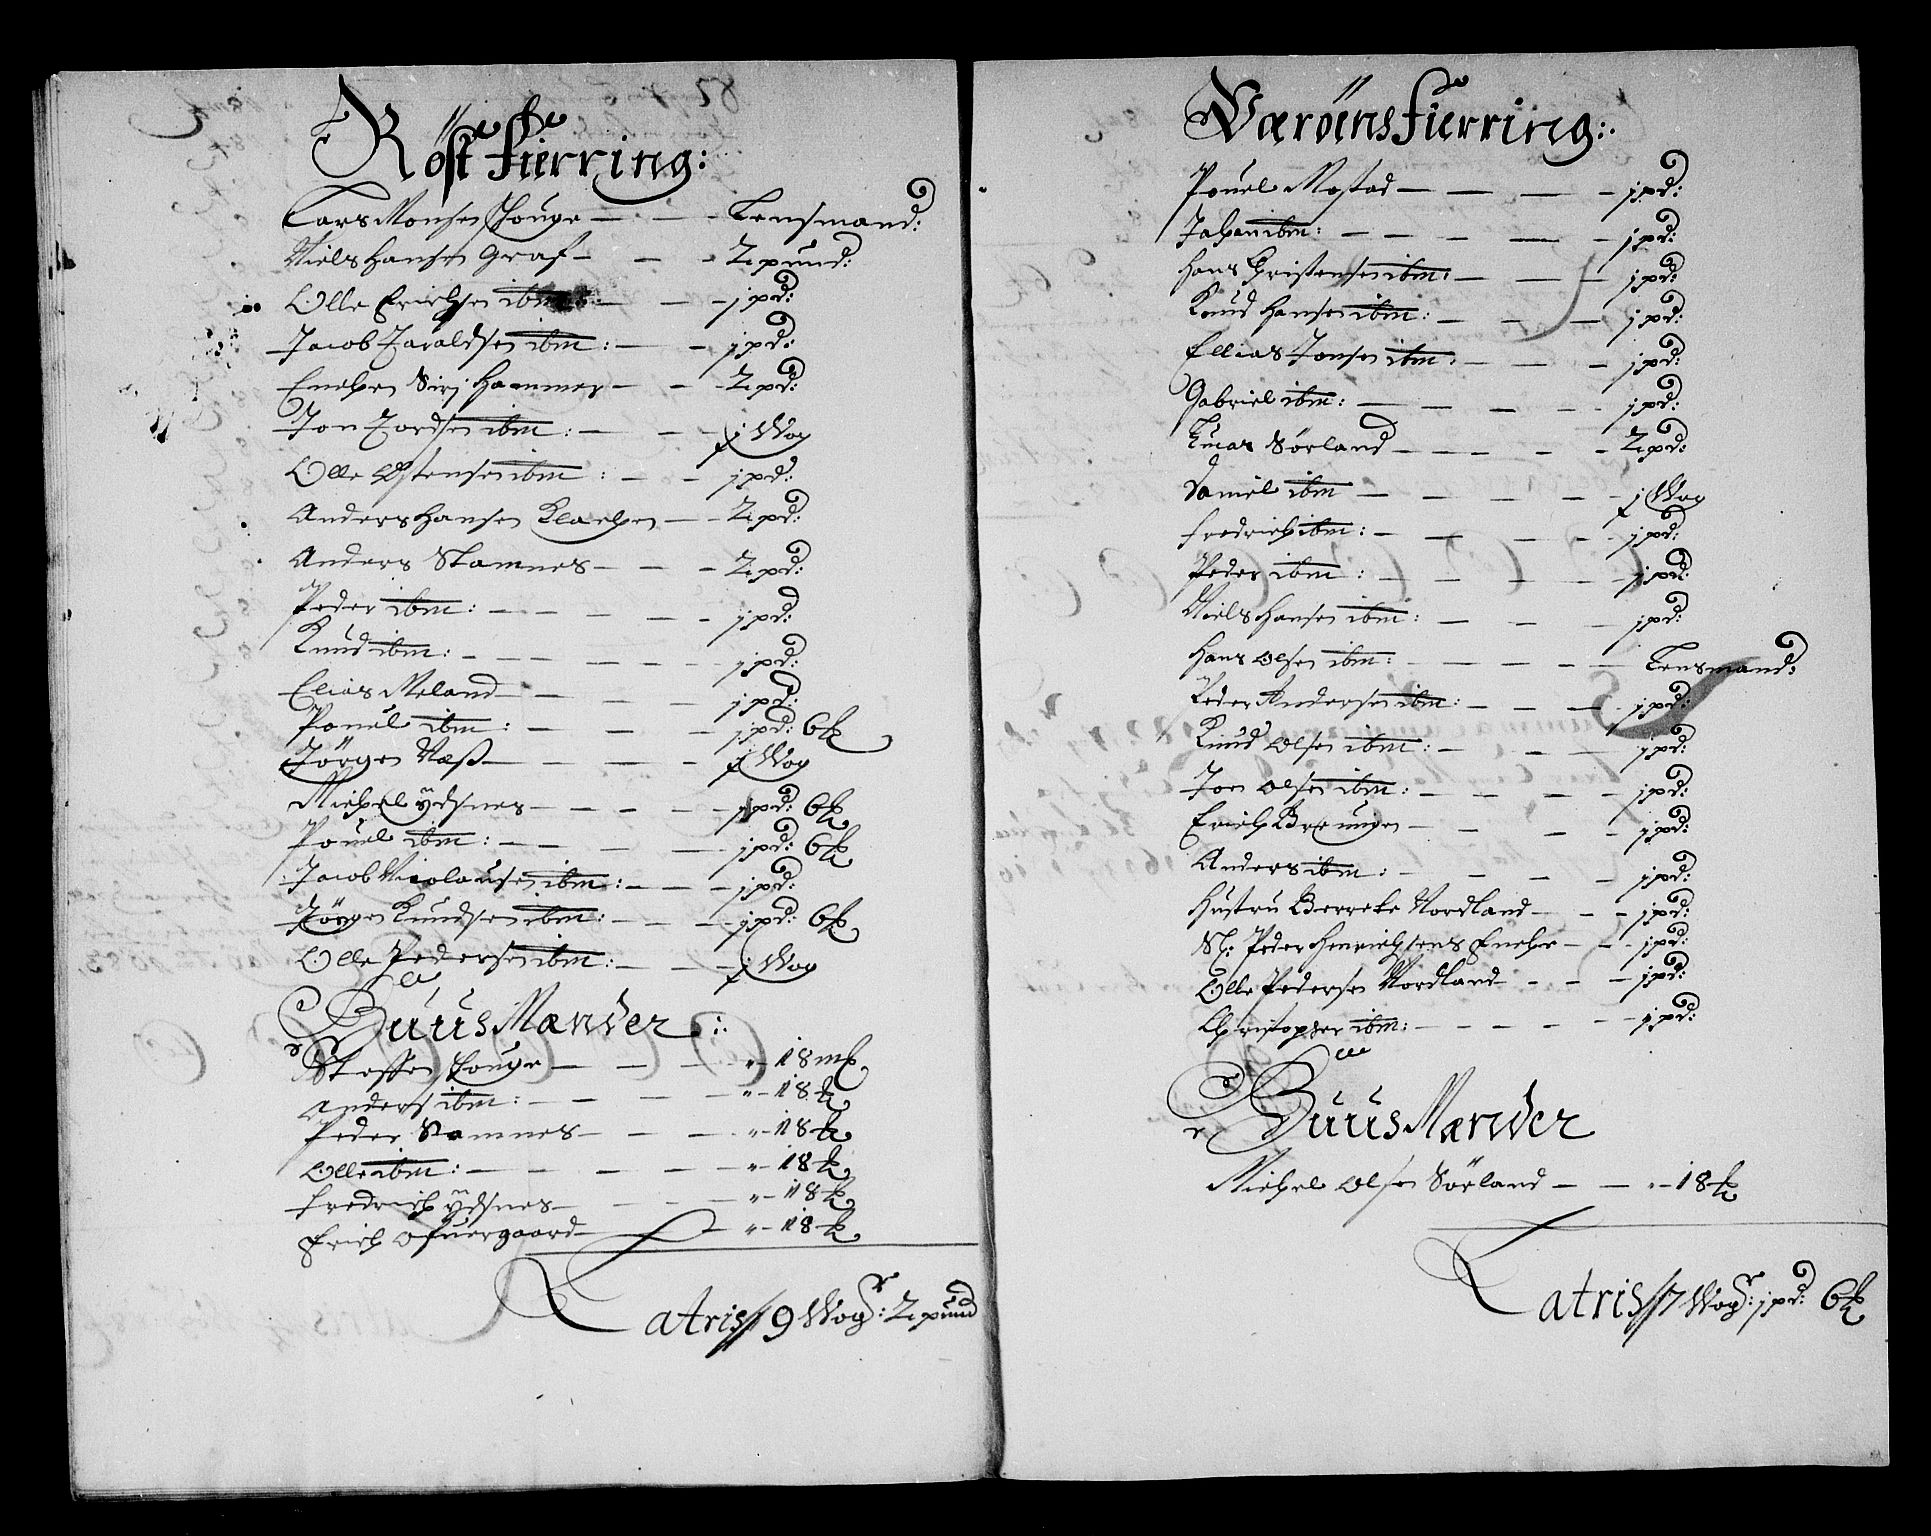 Röst Fierring:
Lars Monsen Houge — — Lensmand:
Niels Hansen Graf — — 2 pund:
Olle Erichsen ibm: — — j pd:
Jacob Jaraldsen ibm: — — j pd:
Enchen Siri Hammer — — 2 pd:
Jon Jordsen ibm: — — j Wog
Olle Ostensen ibm: — — j pd:
Anders Hansen Klachen — — 2 pd:
Anders Stamnes — — — 2 pd:
Peder ibm: — — — — j pd:
Knud ibm: — — — — j pd:
Elias Meland — — — j pd:
Pouel ibm: — — — j pd: 6 ℔
Jörgen Næss — — — j Wog
Michel ÿdsnes — — — j pd: 6 ℔
Pouel ibm: — — — j pd: 6 ℔
Jacob Nicolausen ibm: — — j pd:
Jörgen Knudsen ibm: — — j pd: 6 ℔
Olle Pedersen ibm: — — j Wog
Buus Mænder:
Steffen Houge — — — „ — 18 m℔
Anders ibm: — — — „ — 18 ℔
Peder Stamnes — — — „ — 18 ℔
Olle ibm: — — — — „ — 18 ℔
Fredrich ÿdsnes — — — „ — 18 ℔
Erich Ofuergaard — — „ — 18 ℔
Latris // 9 Wogr: 2 pund
Værøens Fierring:
Pouel Mostad — — — — j pd:
Johan ibm: — — — — j pd:
Hans Christensen ibm: — — j pd:
Knud Hansen ibm: — — — j pd:
Ellias Jonsen ibm: — — — j pd:
Gabriel ibm: — — — — j pd:
Lucas Sörland — — — — 2 pd:
Daniel ibm — — — — j Wog
Fredrich ibm: — — — — j pd:
Peder ibm: — — — — j pd:
Niels Hansen ibm: — — — j pd:
Hans Olsen ibm: — — — — Lensmand:
Peder Andersen ibm: — — — j pd:
Knud Olsen ibm: — — — j pd:
Jon Olsen ibm: — — — — j pd:
Erich Breungen — — — — j pd:
Anders ibm: — — — — j pd:
Hustru Berrete Nordland — — j pd:
Sl: Peder Henrichsens Enche — — j pd:
Olle Pedersen Nordland — — — j pd:
Christopher ibm: — — — — j pd:
Buus Mænder
Michel Olsen Sörland — — „ — 18 ℔
Latris // 7 Wogr: j pd: 6 ℔